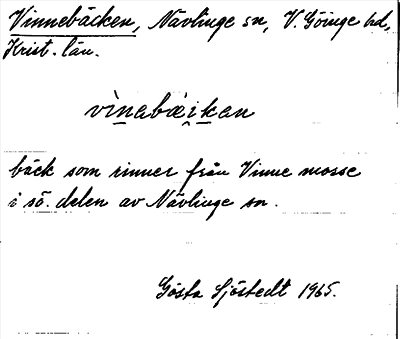 Vinnebäcken, Nävlinge sn, V. Göinge hd,
Krist. län.
vìnabæi̯kan
bäck som rinner från Vinne mosse
i sö. delen av Nävlinge sn.
Gösta Sjöstedt 1965.